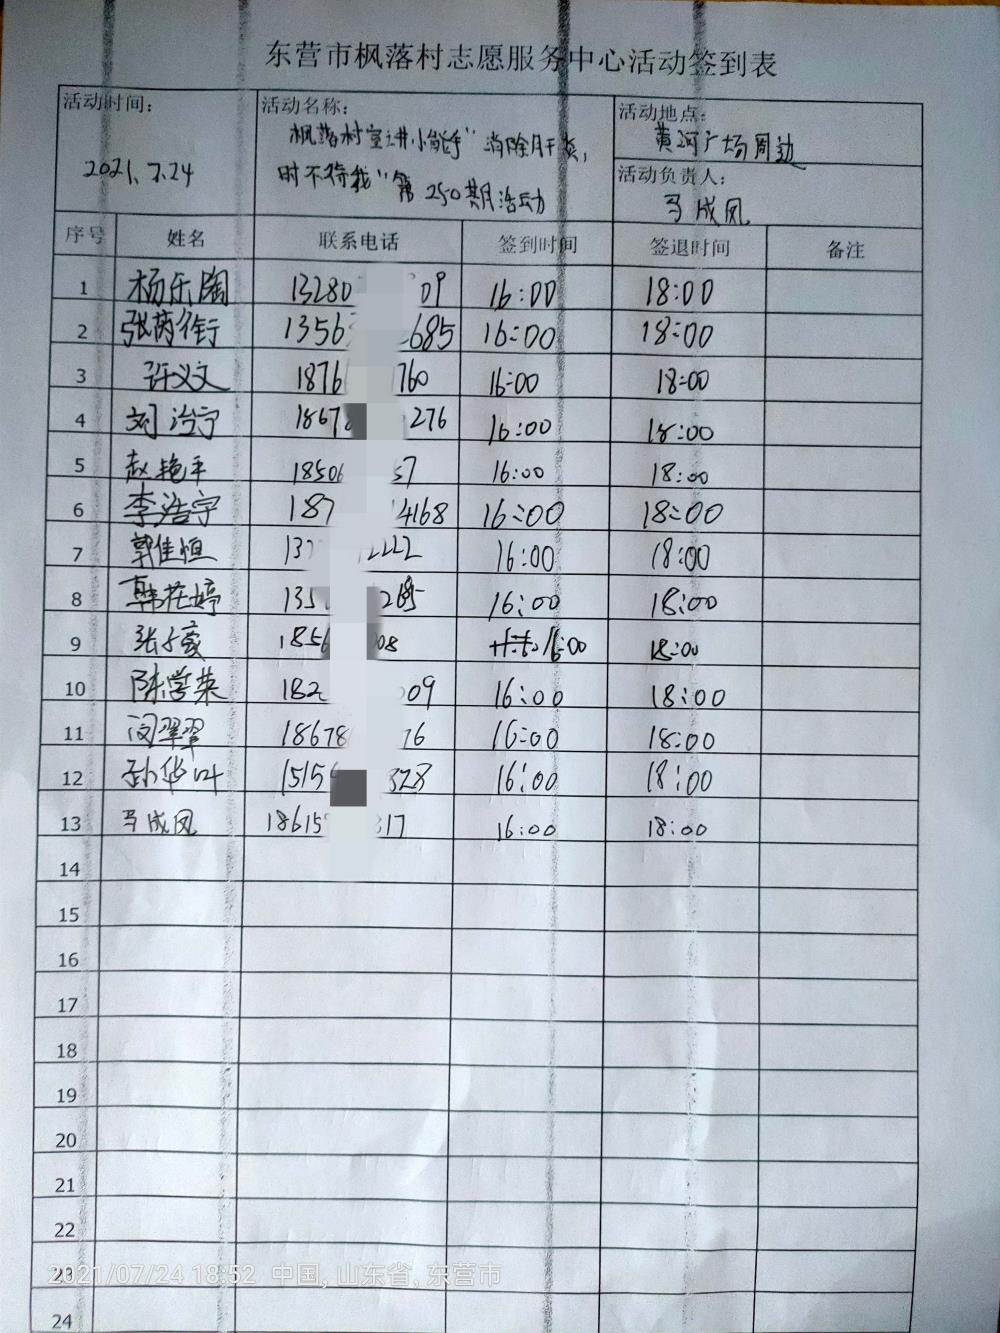 东营市枫落村志愿服务中心活动签到表
活动时间：
2021.7.24
活动名称：
枫落村宣讲小能手"消除肝炎，
时不待我"第250期活动
活动地点：
黄河广场周边
活动负责人：
马成凤
序号 姓名 联系电话 签到时间 签退时间 备注
1 杨乐陶 13280 09 16:00 18:00
2 张芮衔 1356 685 16:00 18:00
3 许义文 1876 760 16:00 18:00
4 刘治宁 1867 276 16:00 18:00
5 赵艳平 18506 57 16:00 18:00
6 李浩宇 187 4168 16:00 18:00
7 郭佳恒 13 2222 16:00 18:00
8 韩茌婷 135 16:00 18:00
9 张 1856 08 16:00 18:00
10 陈学荣 182 09 16:00 18:00
11 闵翠翠 18678 76 16:00 18:00
12 孙华叶 1515 328 16:00 18:00
13 马成凤 18615 817 16:00 18:00
14
15
16
17
18
19
20
21
22
23
2021/07/24 18:52 中国, 山东省, 东营市
24